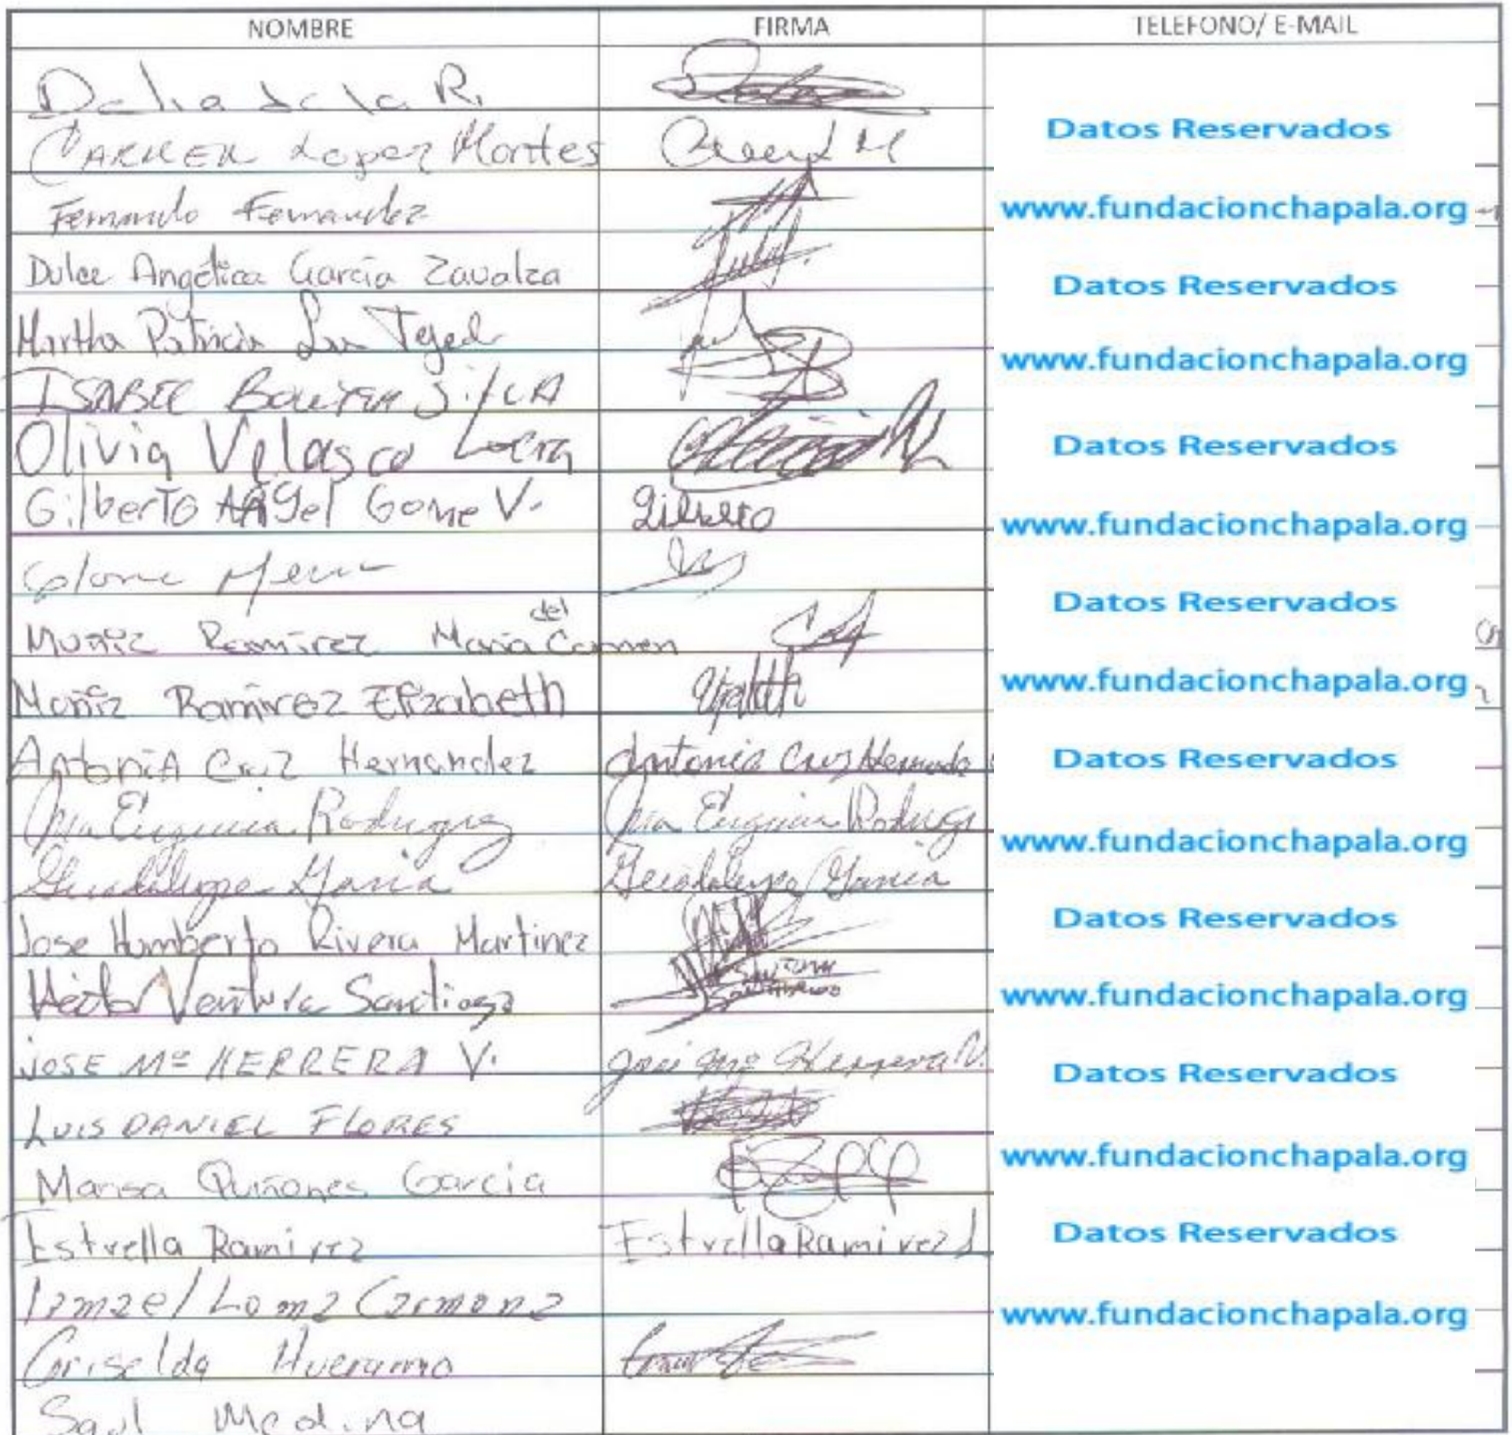 NOMBRE FIRMA TELEFONO/ E-MAIL
Delia de la R.
CARMEN Lopez Montes
Datos Reservados
Fernando Fernandez
www.fundacionchapala.org
Dulce Angélica García Zavalza
Datos Reservados
Martha Patricia Tejed
www.fundacionchapala.org
ISABEL
Olivia Velasco
Datos Reservados
Gilberto Angel Gome V. Gilberto
www.fundacionchapala.org
Datos Reservados
Muñiz Ramirez Maria del Carmen
Muñiz Ramirez Elizabeth
www.fundacionchapala.org
Antonia Cruz Hernandez Antonia Cruz Hernande
Datos Reservados
Ma Eugenia Rodriguez Ma Eugenia Rodrig
www.fundacionchapala.org
Guadalupe Garcia Guadalupe Garcia
Datos Reservados
Jose Humberto Rivera Martinez
Héctor Ventura Santiago
www.fundacionchapala.org
JOSE Mª HERRERA V. José Mª Herrera V.
Datos Reservados
LUIS DANIEL FLORES
Marisa Quiñones Garcia
www.fundacionchapala.org
Estrella Ramirez Estrella Ramirez
Datos Reservados
Izmael Loma Carmona
www.fundacionchapala.org
Griselda Hueramo
Saul Medina